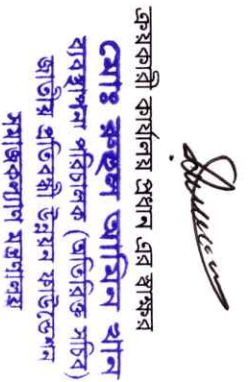 ক্রয়কারী কার্যালয় প্রধান এর স্বাক্ষর
মোঃ রুহুল আমিন খান
ব্যবস্থাপনা পরিচালক (অতিরিক্ত সচিব)
জাতীয় প্রতিবন্ধী উন্নয়ন ফাউন্ডেশন
সমাজকল্যাণ মন্ত্রণালয়